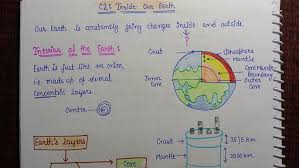 C2: Inside Our Earth
Our Earth is constantly going changes inside and outside.
?
Interior of the Earth:
Earth is just like an onion,
is made up of several
concentric layers.
Center
Crust
Inner
Core
Lithosphere
Mantle
Core Mantle
Boundary
Outer
Core
Earth's layers
Core
Crust
Mantle
35|5 km
2900 km